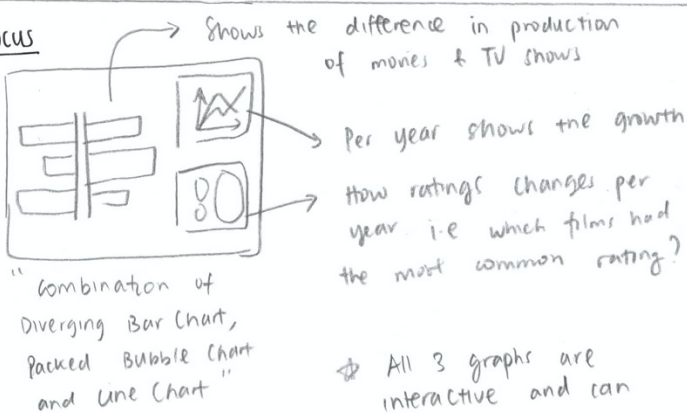 ocus
Shows the difference in production
of movies & TV shows
Per year shows the growth
How ratings changes per
year i.e which films had
the most common rating?
"Combination of
Diverging Bar Chart,
Packed Bubble Chart
and Line Chart"
☆ All 3 graphs are
interactive and can